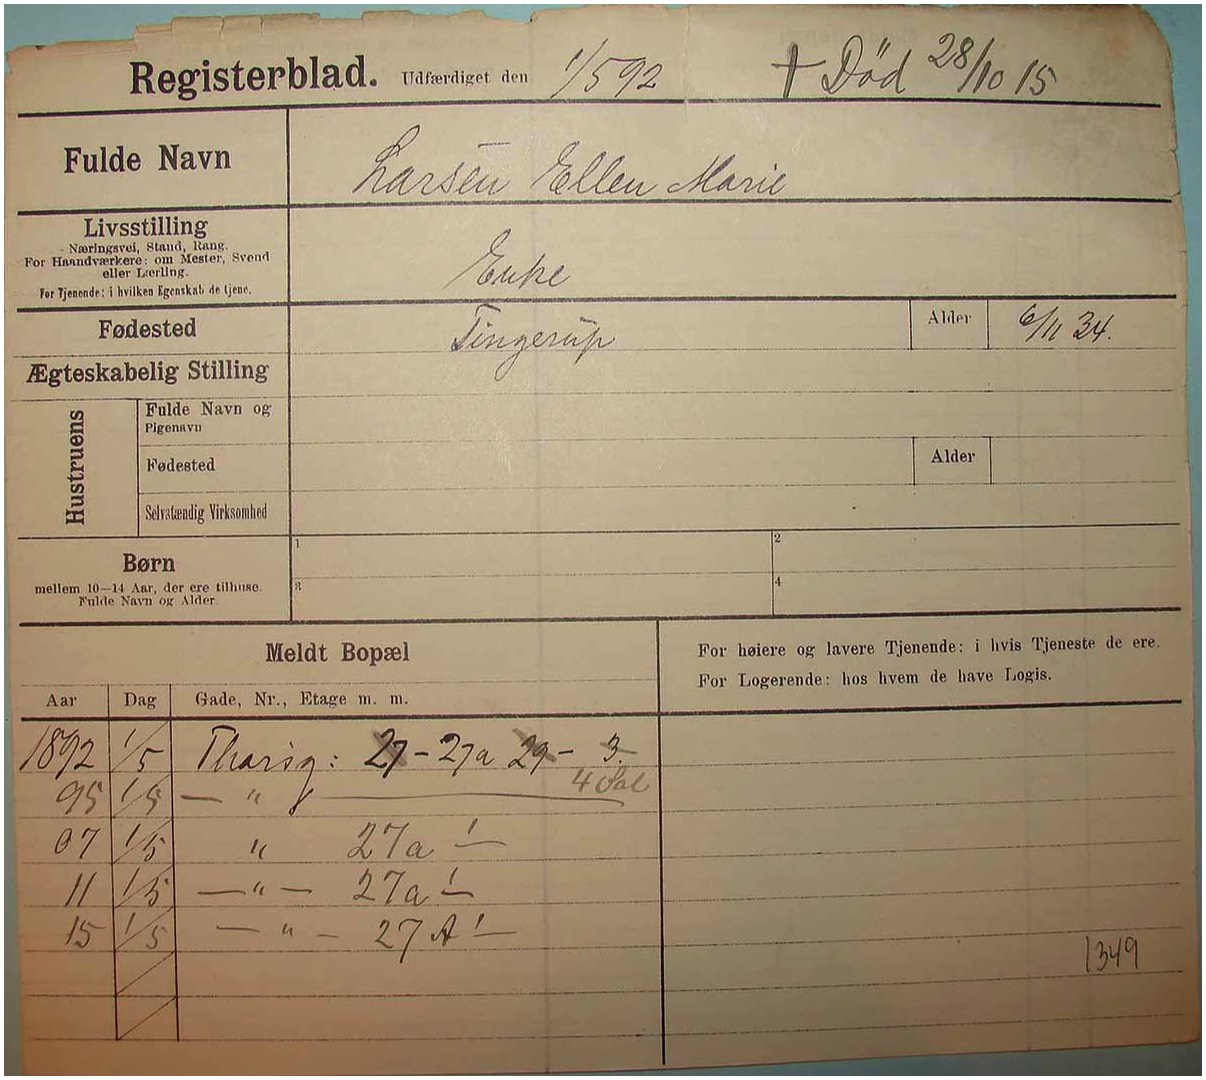 Registerblad. Udfærdiget den 1/5 92 † Død 28/10 15
Fulde Navn Larsen Ellen Marie
Livsstilling
Næringsvei, Stand, Rang.
For Haandværkere: om Mester, Svend
eller Lærling.
For Tjenende: i hvilken Egenskab de tjene.
Enke
Fødested Tingerup Alder 6/11 34.
Ægteskabelig Stilling
Hustruens
Fulde Navn og
Pigenavn
Fødested Alder
Selvstændig Virksomhed
Børn
mellem 10—14 Aar, der ere tilhuse.
Fulde Navn og Alder.
1 2
3 4
Meldt Bopæl
For høiere og lavere Tjenende: i hvis Tjeneste de ere.
For Logerende: hos hvem de have Logis.
Aar Dag Gade, Nr., Etage m. m.
1892 1/5 Tharsg: 27 - 27a 29 - 3.
4 Sal
95 1/5 — " —
07 1/5 " 27a 1 —
11 1/5 — " — 27a 1 —
15 1/5 — " — 27 A 1 —
1349